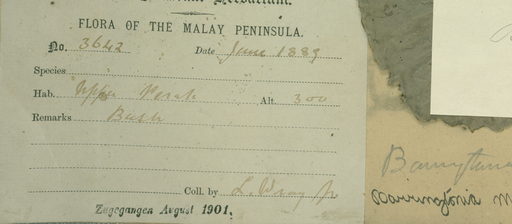 Herbarium.
FLORA OF THE MALAY PENINSULA.
No. 3642 Date June 1889
Species
Hab. Upper Perak Alt. 300
Remarks Bush
Coll. by L. Wray Jr
Zugegangen August 1901.
Barringtonia
Barringtonia